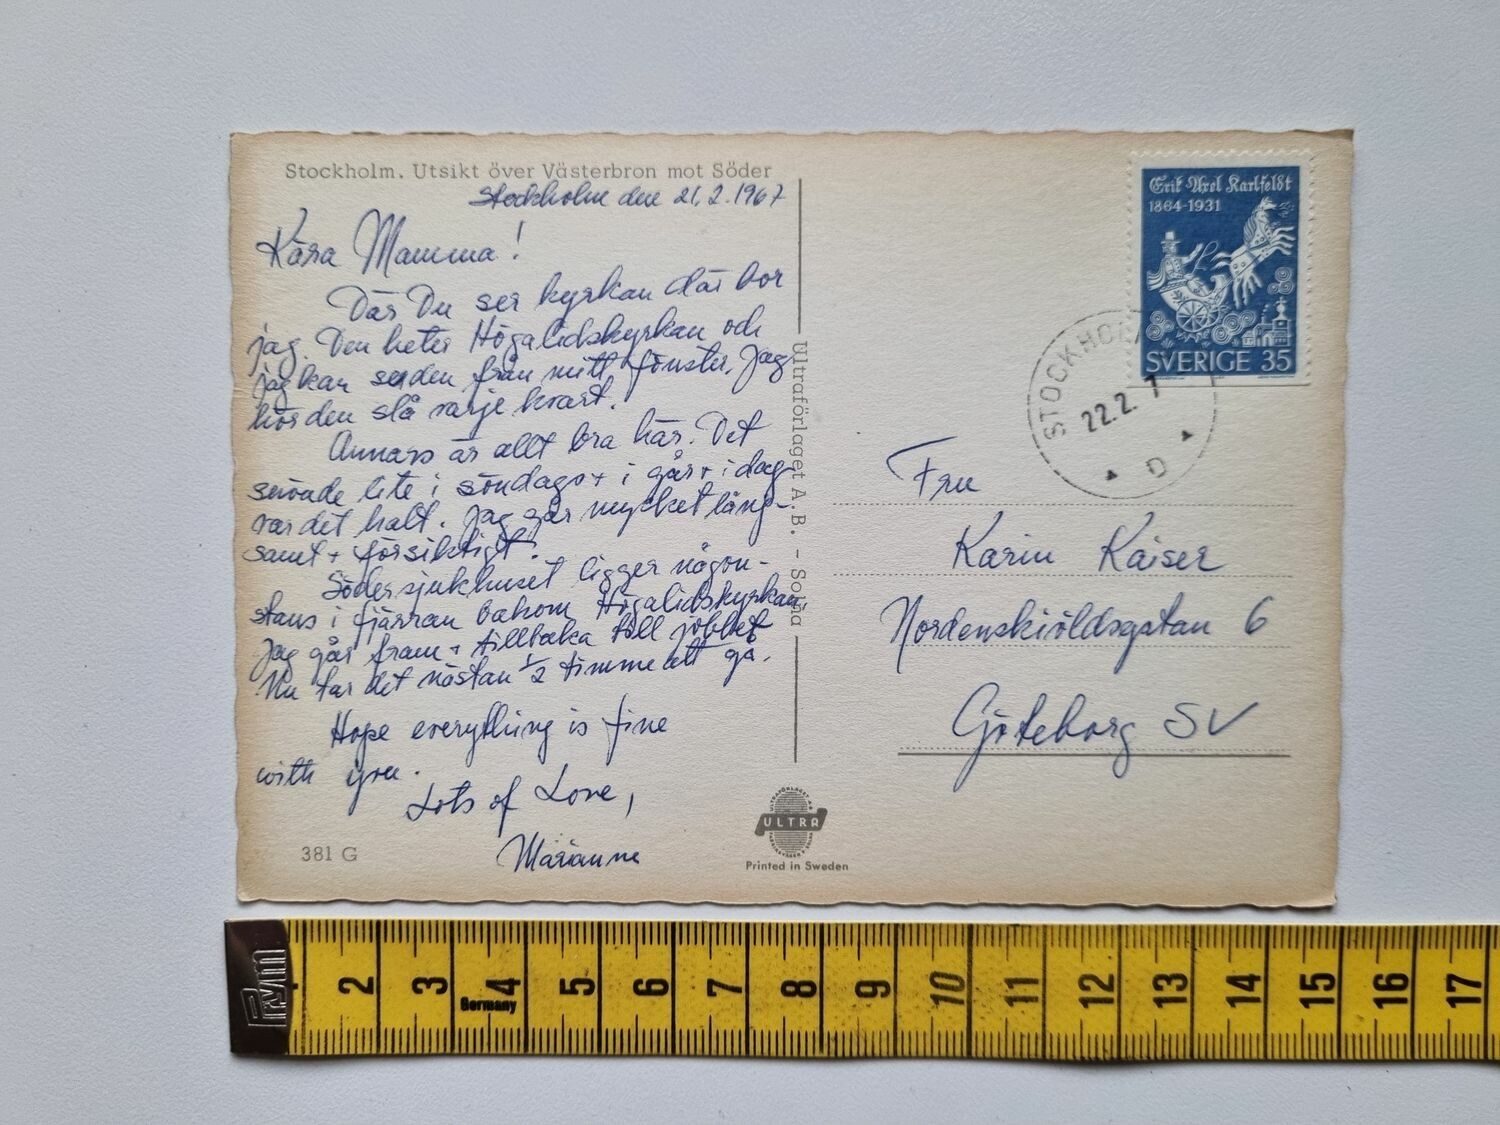 Stockholm. Utsikt över Västerbron mot Söder
Stockholm den 21.2.1967
Kära Mamma!
Där Du ser kyrkan där bor
jag. Den heter Högalidskyrkan och
jag kan se den från mitt fönster. Jag
hör den slå varje kvart.
Annars är allt bra här. Det
snöade lite i söndags + i går + i dag
var det halt. Jag går mycket lång-
samt + försiktigt.
Södersjukhuset ligger någon-
stans i fjärran bakom Högalidskyrkan
Jag går fram + tillbaka till jobbet
Nu tar det nästan 1/2 timme att gå.
Hope everything is fine
with you.
Lots of Love,
Marianne
381 G
Ultraförlaget A.B. - Solna
ULTRA
Printed in Sweden
Erik Axel Karlfeldt
1864-1931
SVERIGE 35
STOCKHOL
22.2.
D
Fru
Karin Kaiser
Nordenskiöldsgatan 6
Göteborg SV
Prym
2 3 4 5 6 7 8 9 10 11 12 13 14 15 16 17
Germany